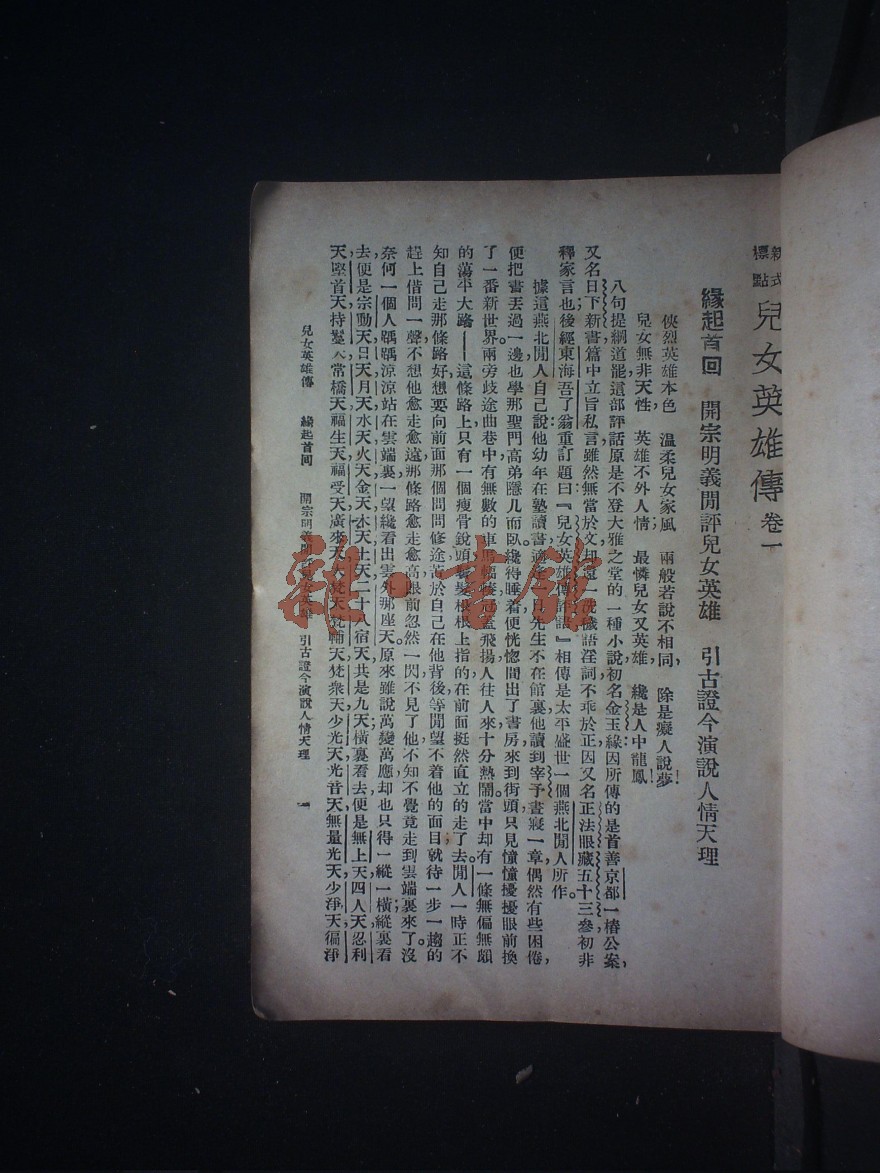 新式標點 兒女英雄傳 卷一
緣起首回 開宗明義閒評兒女英雄 引古證今演說人情天理
俠烈英雄本色, 溫柔兒女家風, 兩般若說不相同, 除是癡人說夢!
兒女無非天性, 英雄不外人情, 最憐兒女又英雄, 纔是人中龍鳳!
八句提綱道罷這部評話原是不登大雅之堂的一種小說,初名金玉緣;因所傳的是首善京都一樁公案,
又名日下新書篇中立旨私言雖然無當於文却還一洗穢語淫詞不乖於正因又名正法眼藏五十三參初非
釋家言也;後經東海吾了翁重訂題曰:『兒女英雄傳評話』相傳是太平盛世一個燕北閒人所作。
據這燕北閒人自己說他幼年在塾讀書,適 先生不在館裏他讀到宰予晝寢一章偶然有些困倦,
便把書丟過一邊也學那聖門高弟隱几而臥纔得睡着便恍惚間出了書房來到街頭只見憧憧擾擾眼前換
了一番新世界。兩旁歧途曲巷中有無數的車馬輻輳冠蓋飛揚人往人來十分熱鬧當中却有一條無偏無頗
的蕩平大路——這條路上只有一個瘦骨銳頭 髮根根上指的在前面挺然直立的走了去。閒人一時正不
知自己走那條路好,想要向前面那個問問修途苦於自己在他背後,等閒望不着他的面目;就待一步一趨的
趕上借問一聲不想他愈走愈遠,那條路愈走愈高眼前忽然一閃不見了他不知不覺竟走到雲端裏來了。沒
奈何一個人踽踽涼涼站在雲端裏一望纔看出雲外那座天。原來雖說萬變萬應却也只得一縱一橫縱裏看
去便是宗動天日天月天水天火天金天木天土天二十八宿天共是九天;橫裏看去便是無上天四人天忍利
天堅首天持鬘天常橋天福生天福受天廣果天大梵天梵輔天梵衆天少光天光音天無量光天少淨天徧淨
兒女英雄傳 緣起首回 開宗明義閒評兒女英雄 引古證今演說人情天理 一
雜·書館